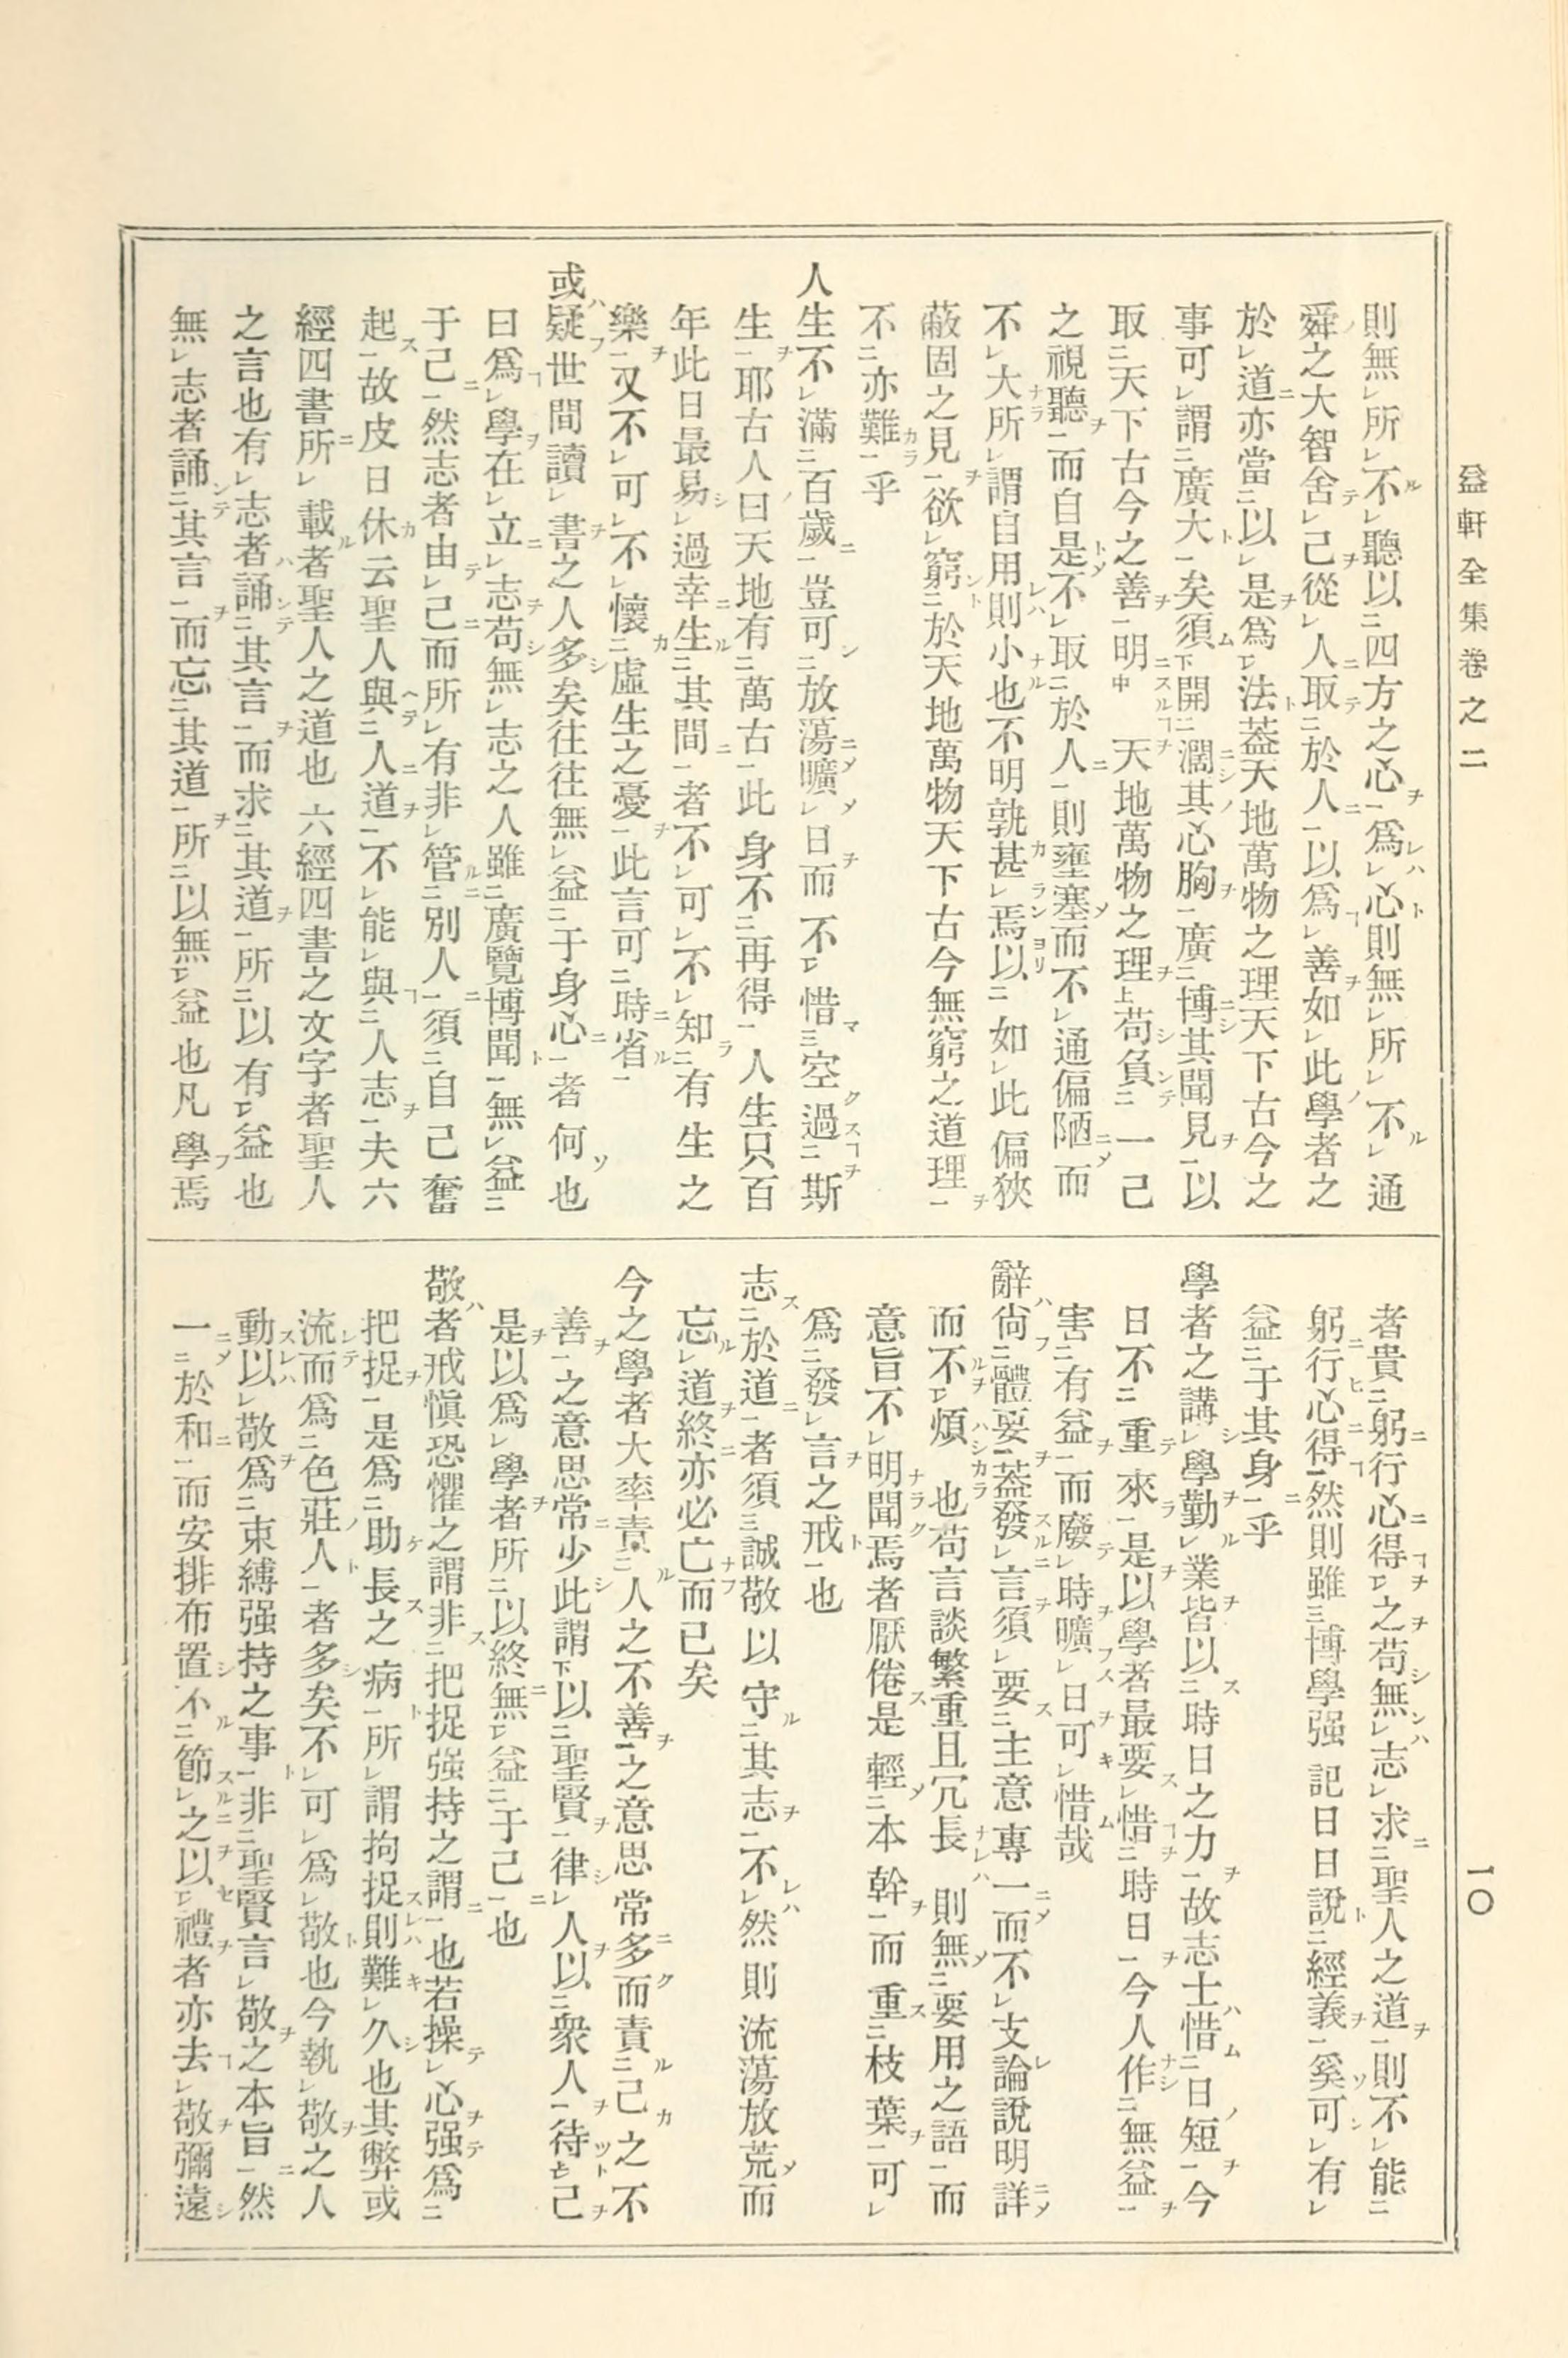 益軒全集卷之二
則無所不聽以四方之心爲心則無所不通
舜之大智舍己從人取於人以爲善如此學者之
於道亦當以是爲法蓋天地萬物之理天下古今之
事可謂廣大矣須開濶其心胸廣博其聞見以
取天下古今之善明天地萬物之理苟負一己
之視聽而自是不取於人則壅塞而不通偏陋而
不大所謂自用則小也不明孰甚焉以如此偏狹
蔽固之見欲窮於天地萬物天下古今無窮之道理
不亦難乎
人生不滿百歲豈可放蕩曠日而不惜空過斯
生耶古人曰天地有萬古此身不再得人生只百
年此日最易過幸生其間者不可不知有生之
樂又不可不懷虛生之憂此言可時省
或疑世間讀書之人多矣往往無益于身心者何也
曰爲學在立志苟無志之人雖廣覽博聞無益
于己然志者由己而所有非管別人須自己奮
起故皮日休云聖人與人道不能與人志夫六
經四書所載者聖人之道也六經四書之文字者聖人
之言也有志者誦其言而求其道所以有益也
無志者誦其言而忘其道所以無益也凡學焉
者貴躬行心得之苟無志求聖人之道則不能
躬行心得然則雖博學强記日日說經義奚可有
益于其身乎
學者之講學勤業皆以時日之力故志士惜日短今
日不重來是以學者最要惜時日今人作無益
害有益而廢時曠日可惜哉
辭尙體要蓋發言須要主意專一而不支論說明詳
而不煩也苟言談繁重且冗長則無要用之語而
意旨不明聞焉者厭倦是輕本幹而重枝葉可
爲發言之戒也
志於道者須誠敬以守其志不然則流蕩放荒而
忘道終亦必亡而已矣
今之學者大率責人之不善之意思常多而責己之不
善之意思常少此謂以聖賢律人以衆人待己
是以爲學者所以終無益于己也
敬者戒愼恐懼之謂非把捉强持之謂也若操心强爲
把捉是爲助長之病所謂拘捉則難久也其弊或
流而爲色莊人者多矣不可爲敬也今執敬之人
動以敬爲束縛强持之事非聖賢言敬之本旨然
一於和而安排布置不節之以禮者亦去敬彌遠
一〇